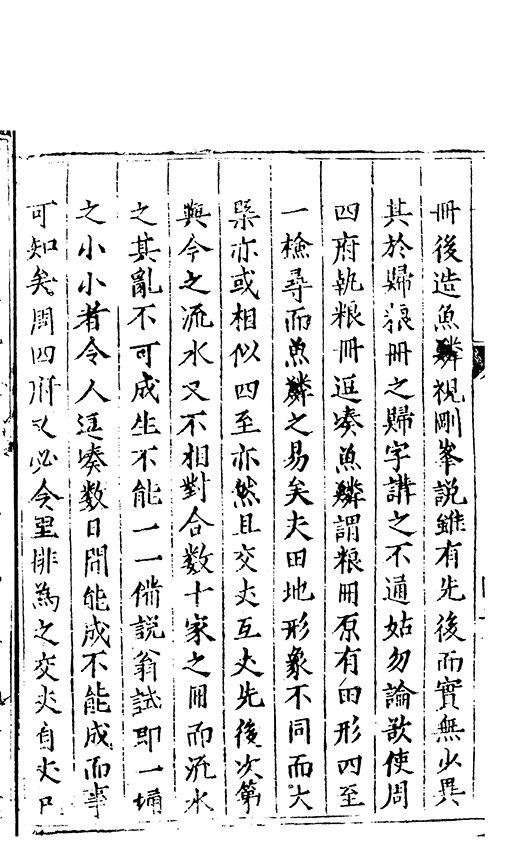 冊後造魚鱗視剛峯說雖有先後而實無少異
其於歸粮冊之歸字講之不通姑勿論歆使周
四府執粮冊逕凑魚鱗謂粮冊原有田形四至
一檢尋而魚鱗之易矣夫田地形象不同而大
槩亦或相似四至亦然且交丈互丈先後次第
與今之流水又不相對合數十家之冊而流水
之其亂不可成生不能一一備說翁試即一啚
之小小者令人逕凑數日間能成不能成而事
可知矣周四府又必令里排為之交丈自丈